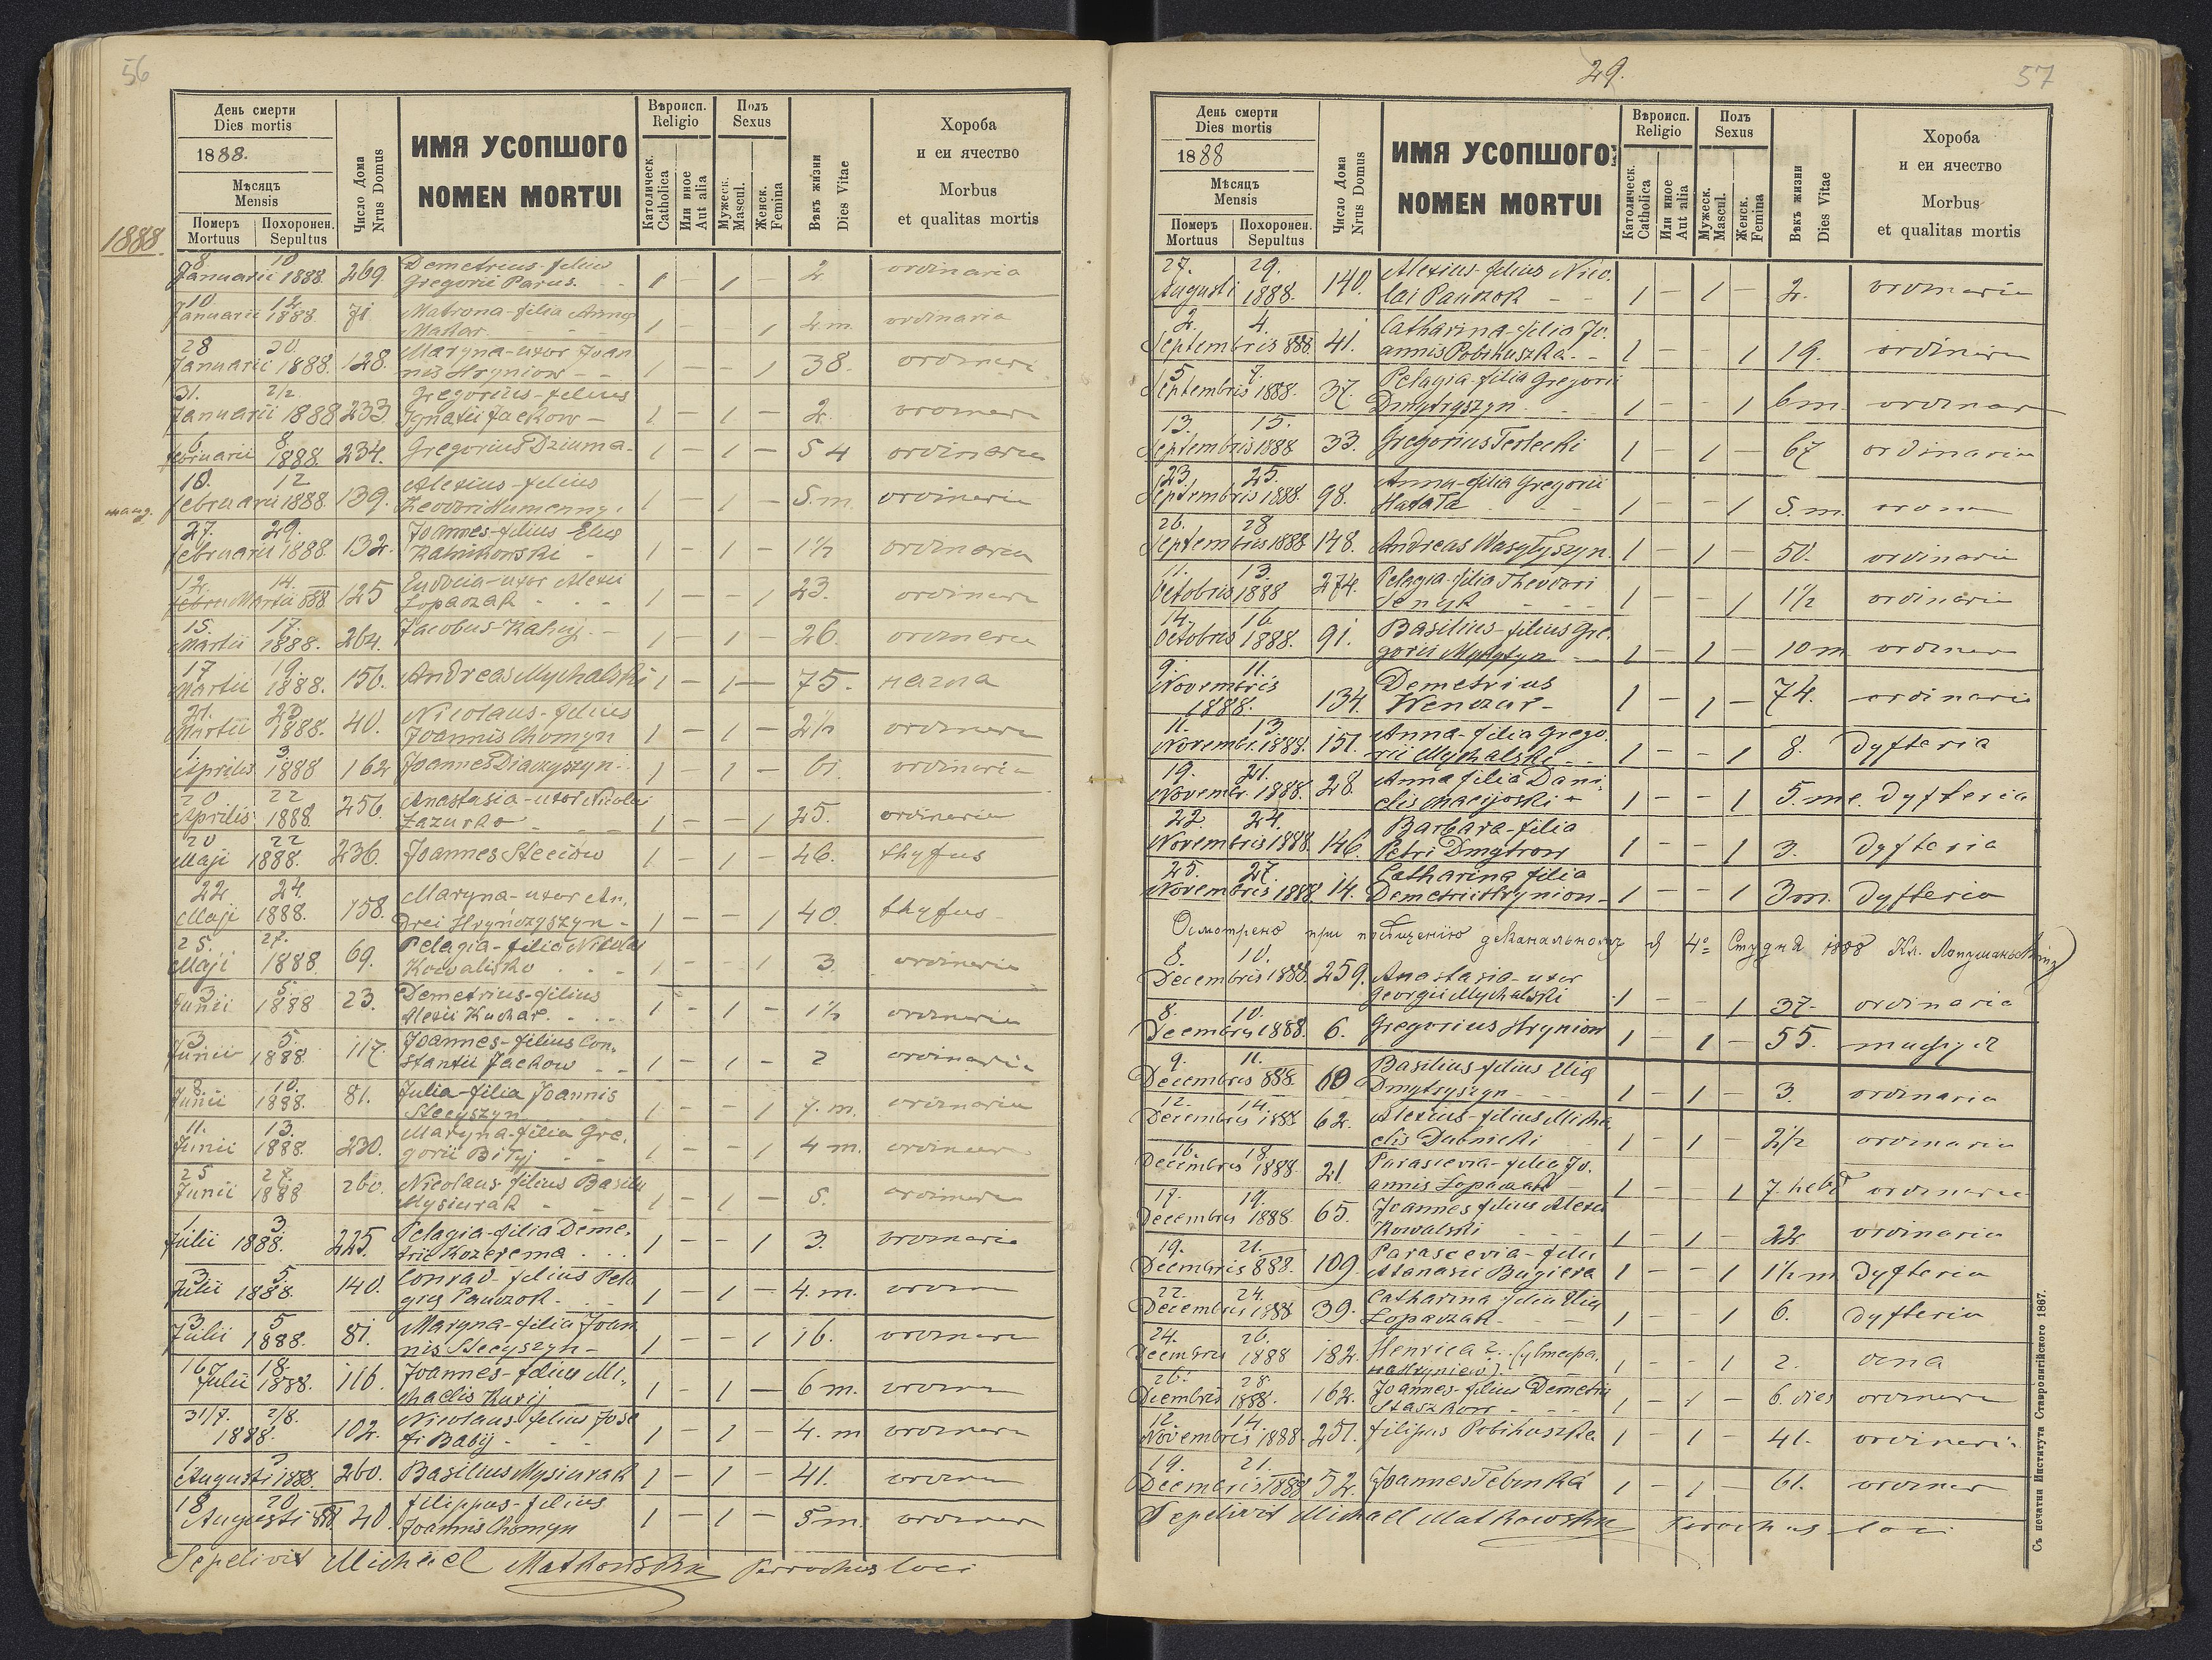 56
День смерти
Dies mortis
1888.
Мѣсяцъ
Mensis
Померъ Похоронен.
Mortuus Sepultus
Число Дома
Nrus Domus
ИМЯ УСОПШОГО
NOMEN MORTUI
Вѣроисп.
Religio
Католическ.
Catholica
Или иное
Aut alia
Полъ
Sexus
Мужеск.
Mascul.
Женск.
Femina
Вѣкъ жизни
Dies Vitae
Хороба
и еи ячество
Morbus
et qualitas mortis
1888.
8 10
Januarii 1888. 269. Demetrius filius
Gregorii Parus. 1 – 1 – 2 ordinaria
10. 12.
Januarii 1888 71 Matrona-filia Annae
Makar 1 – – 1 2 m. ordinaria
28 30.
Januarii 1888. 128. Maryna-uxor Joan
nis Hryniow – – 1 – – 1 38.
31. 2/2
Januarii 1888 233 Gregorius-filius
Ignatii Jackow – 1 – 1 – 2.
6. 8.
februarii 1888. 234. Gregorius Dziuma. 1 – 1 – 54 ordinaria
10. 12
februarii 1888 139. Alexius-filius
1 – 1 – 5.m. ordinaria
27. 29.
februarii 1888 132. Joannes-filius Eliae
Kalnikowski – 1 – 1 – 1½ ordinaria
12. 14.
Martii 888 125 Eudocia-uxor Alexii
Lopaczak 1 – – 1 23. ordinaria
15. 17.
Martii 1888. 264. Jacobus 1 – 1 – 26.
17 19.
Martii 1888. 156. Andreas Mychalski 1 – 1 – 75.
21. 23
Martii 1888. 40. Nicolaus-filius
Joannis Chomyn 1 – 1 – 2½
1 3
Aprilis 1888 162 Joannes Diaczyszyn 1 – 1 – ordinaria
20 22
Aprilis 1888 256. Anastasia-uxor Nicolai
Lazurko 1 – – 1 25. ordinaria
20 22
Maji 1888. 236. Joannes Steciow 1 – 1 – 46. thyfus
22 24.
Maji 1888. 158. Maryna-uxor An.
drei Hryńczyszyn – 1 – – 1 40. thyfus
25. 27.
Maji 1888 69. Pelagia-filia Nicolai
Kowalisko 1 – – 1 3. ordinaria
3 5.
Junii 1888 23. Demetrius-filius
Alexii Kuchar. 1 – 1 – 1½ ordinaria
3. 5.
Junii 1888. 117. Joannes-filius Con.
stantii Jackow – – 1 – 1 – 2 ordinaria
8. 10.
Junii 1888. 81. Julia-filia Joannis
Stecyszyn 1 – – 1 7. m. ordinaria
11. 13.
Junii 1888. 230. Maryna-filia Gre.
gorii Biłyj 1 – – 1 4 m.
25 28.
Junii 1888 260. Nicolaus filius Basilii
Mysiurak 1 – 1 – 5.
1 3
Julii 1888. 225. Pelagia-filia Deme.
trii Kozerema 1 – – 1 3. ordinaria
3 5.
Julii 1888. 140. Conrad-filius Pela
giae Panczok. 1 – 1 – 4. m.
3 5
Julii 1888. 81. Maryna-filia Joan
nis Stecyszyn – 1 – – 1 16.
16 18.
Julii 1888. 116. Joannes-filius Mi.
chaelis Kurij 1 – 1 – 6 m.
31/7. 2/8.
1888. 102. Nicolaus-filius Jose
fi Babij 1 – 1 – 4. m
1 3
Augusti 1888. 260. Basilius Mysiurak 1 – 1 – 41.
18 20
Augusti 40. filippus-filius
Joannis Chomyn 1 – 1 – 5 m.
Sepelivit Michael Matkowski Parochus loci
29.
57
День смерти
Dies mortis
1888
Мѣсяцъ
Mensis
Померъ Похоронен.
Mortuus Sepultus
Число Дома
Nrus Domus
ИМЯ УСОПШОГО
NOMEN MORTUI
Вѣроисп.
Religio
Католическ.
Catholica
Или иное
Aut alia
Полъ
Sexus
Мужеск.
Mascul.
Женск.
Femina
Вѣкъ жизни
Dies Vitae
Хороба
и еи ячество
Morbus
et qualitas mortis
27. 29.
Augusti 1888. 140. Alexius-filius Nico.
lai Panczok – – 1 – 1 – 2.
2. 4.
Septembris 888. 41. Catharina-filia Jo.
annis Pobihuszka. – 1 – – 1 19.
5 7.
Septembris 1888. 37. Pelagia-filia Gregorii
Dmytryszyn 1 – – 1 6m.
13. 15.
Septembris 1888 33. Gregorius Terlecki 1 – 1 – 67 ordinaria
23. 25.
Septembris 1888. 98. Anna-filia Gregorii
1 – – 1 5. m.
26. 28
Septembris 1888 148. Andreas Wasyłyszyn. 1 – 1 – 50. ordinaria
11. 13.
Octobris 1888 274. Pelagia-filia Theodori
Senyk 1 – – 1 1½ ordinaria
14. 16
Octobris 1888. 91. Basilius-filius Gre.
gorii Mykytyn 1 – 1 – 10 m
9. 11.
Novembris
1888. 134. Demetrius
Wenczur – 1 – 1 – 74. ordinaria
11. 13
Novembr. 1888. 151. Anna-filia Grego.
rii Mychalski 1 – – 1 8. Dyfteria
19. 21.
Novembr. 1888. 28. Anna filia Dani.
elis Macijoski 1 – – 1 5. me. dyfteria
22. 24.
Novembris 1888. 146. Barbara-filia
Petri Dmytrow 1 – – 1 3. Dyfteria
25. 27.
Novembris 1888 14. Catharina filia
Demetrii Hryniow – 1 – – 1 3m. Dyfteria
Осмотрено при 4º Студня 1888
8. 10.
Decembris 1888. 259. Anastasia-uxor
Georgii Mychalski 1 – – 1 37. ordinaria
8. 10.
Decembris 1888. 6. Gregorius Hryniow 1 – 1 – 55.
9. 11.
Decembris 888. 60 Basilius filius Eliae
Dmytryszyn 1 – 1 – 3. ordinaria
12. 14.
Decembris 1888 62. Alexius-filius Micha
elis Dubnicki 1 – 1 – 2½ ordinaria
16. 18.
Decembris 1888 21 Parascevia-filia Jo.
annis Lopaczak 1 – – 1 7. hebd
17. 19.
Decembris 1888. 65. Joannes filius Alexii
Kowalski 1 – 1 – 22 ordinaria
19. 21.
Decembris 888. 109. Parascevia-filia
Atanasii Bugiera 1 – – 1 1½ m Dyfteria
22. 24.
Decembris 1888 39. Catharina filia Eliae
Lopaczak 1 – – 1 6. dyfteria
24. 26.
Decembris 1888 182. Henrica
1 – – 1 2.
26. 28
Decembris 1888. 162. Joannes-filius Demetrii
Staszkow 1 – 1 – 6. dies
12. 14.
Novembris 1888. 251. filipus Pobihuszka 1 – 1 – 41. ordinaria
19. 21.
Decembris 1888 52. Joannes Tebinka 1 – 1 – 61.
Sepelivit Michael Matkowski Parochus loci
Съ печатни Института Ставропигійского 1867.